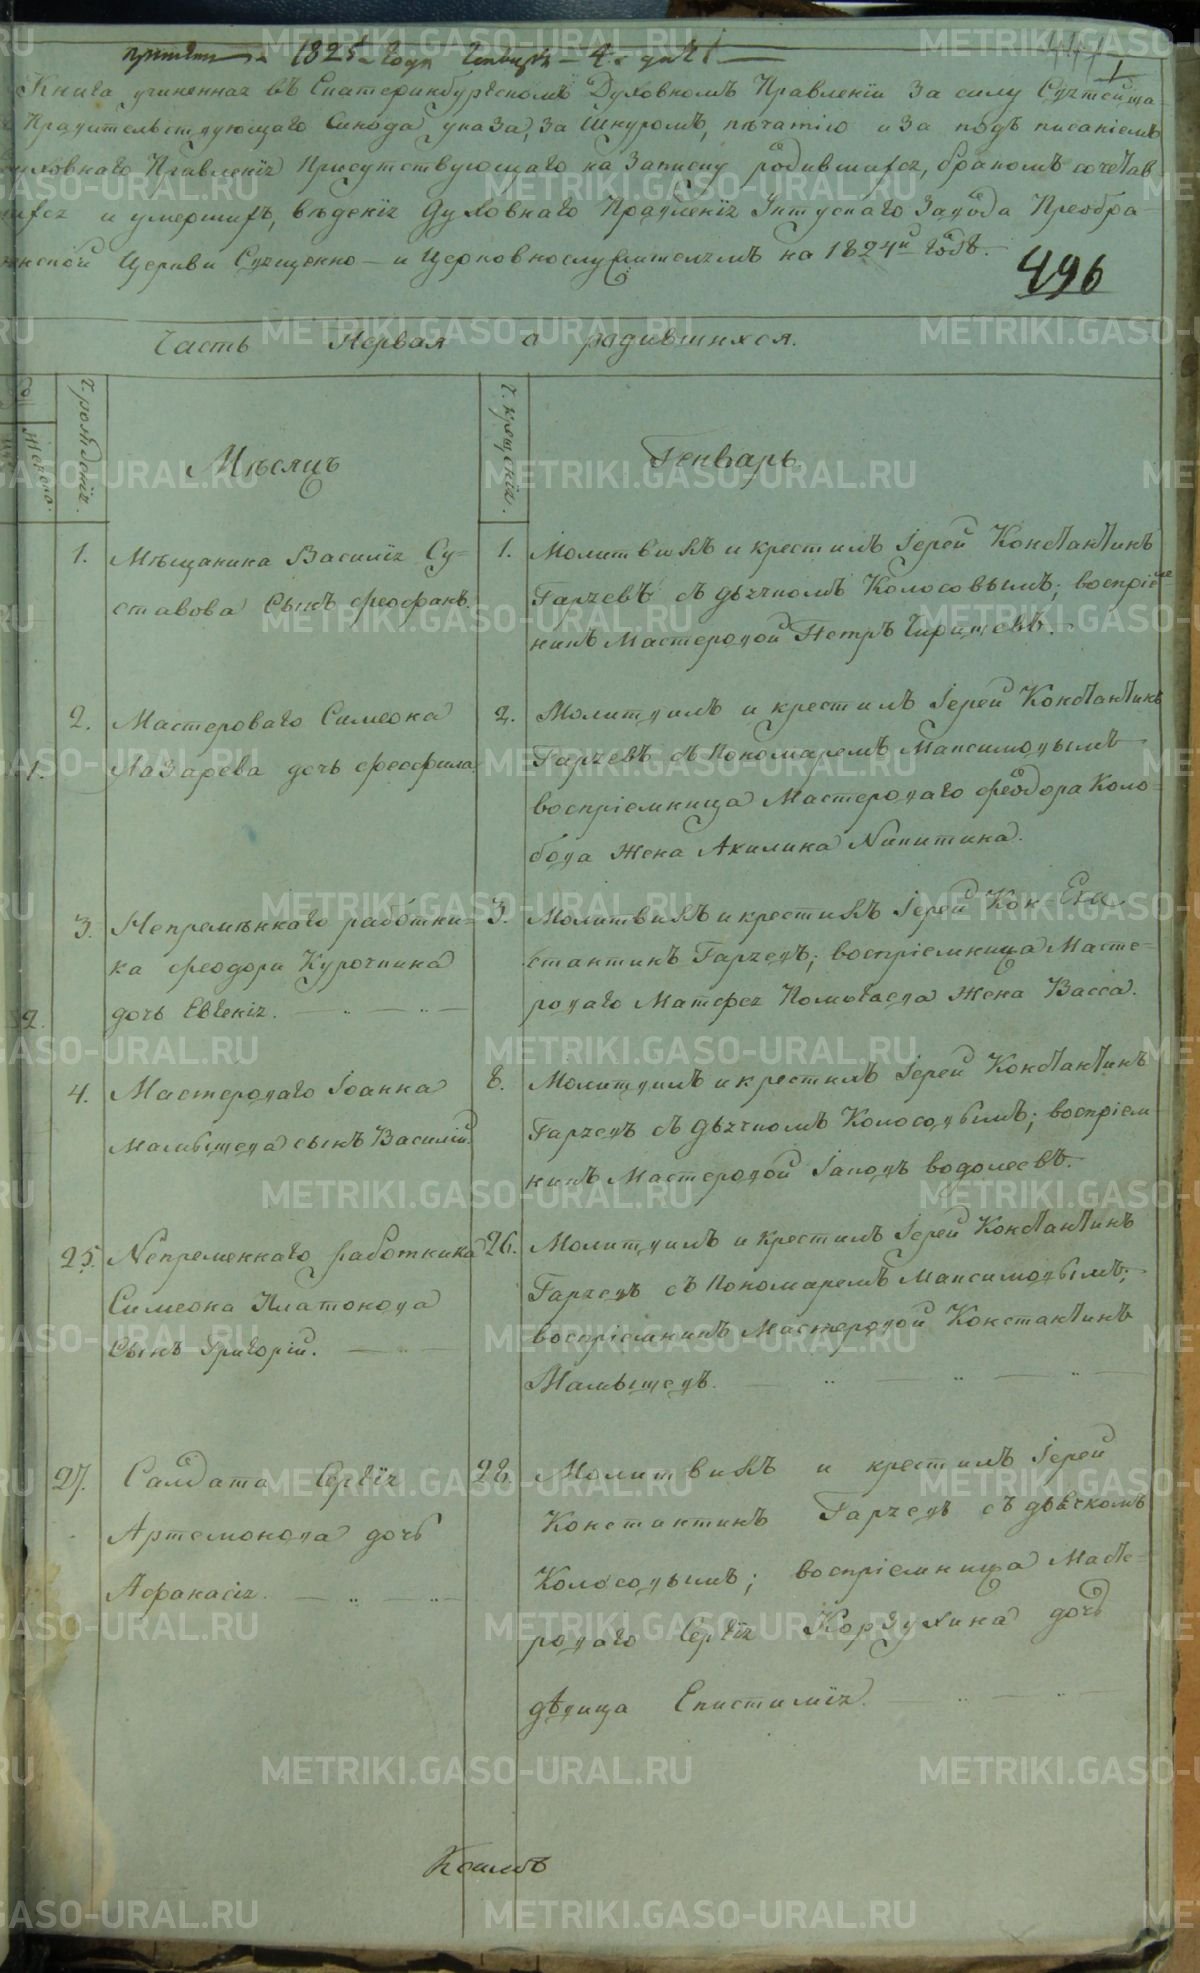 1825 года Генваря 4. дня
Книга учиненная въ Екатеринбургскомъ Духовномъ Правленіи за силу Святейша-
Правительствующаго Синода указа, за шнуромъ, печатію и за подъ писаніемъ
уховнаго Правленія Присутствующаго на записку родившихся, бракомъ сочетав
ихся и умершихъ, вѣденія Духовнаго Правленія Завода Преобра-
женской Церкви Священно- и Церковнослужителямъ на 1824й годъ.
496
Часть Первая о родившихся.
Ч. рождения.
Ч. крещенія.
Женска.
Мѣсяцъ
Генварь.
1. Мѣщанина Василія Су=
ставова сынъ Феофанъ.
1. Молитвилъ и крестилъ Іерей Константинъ
Гаряевъ съ дьячкомъ Колосовымъ; воспріем
никъ Мастеровой Петръ
2. Мастероваго Симеона
Лазарева дочь Феофила
1.
2. Молитвилъ и крестилъ Іерей Константинъ
Гаряевъ съ Пономаремъ Максимовымъ
воспріемница Мастероваго Феодора Коло=
бова жена Акилина Никитина.
3. Непремѣннаго работни=
ка Феодора Курочкина
дочь Евгенія.
2.
3. Молитвилъ и крестилъ Іерей Кон=
стантинъ Гаряевъ; воспріемница Масте=
роваго Матфея жена Васса.
4. Мастероваго Іоанна
Малышева сынъ Василій.
8. Молитвилъ и крестилъ Іерей Константинъ
Гаряевъ съ дьячкомъ Колосовымъ; воспріем
никъ Мастеровой Іаковъ Водолеевъ.
25. Непременнаго работника
Симеона Платонова
сынъ Григорій.
26. Молитвилъ и крестилъ Іерей Константинъ
Гаряевъ съ Пономаремъ Максимовымъ;
воспріемникъ Мастеровой Константинъ
Малышевъ.
27. Салдата Сергія
Артемонова дочь
Афанасія.
28. Молитвилъ и крестилъ Іерей
Константинъ Гаряевъ съ дьячкомъ
Колосовымъ; воспріемница Масте-
роваго Сергія Корзухина дочь
дѣвица Епистимія.
METRIKI.GASO-URAL.RU